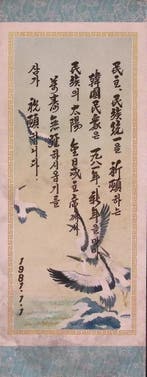 民主, 民族統一을 祈願하는
韓國民衆은 一九八一年, 新年을
民族의 太陽 金日成主席께서
萬壽無疆하시옵기를
삼가 祝願합니다.
1981.1.1